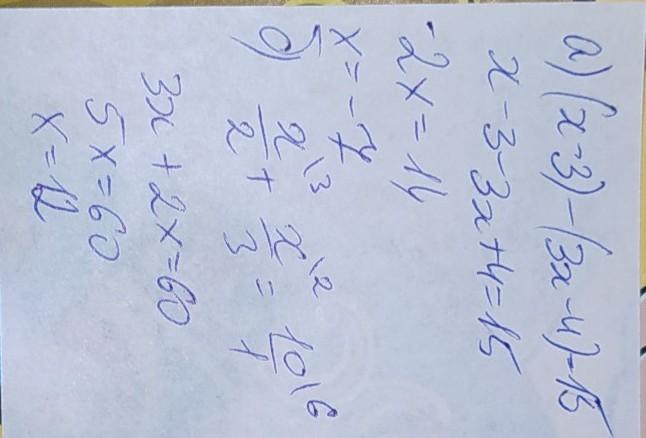 а) (x-3)-(3x-4)=15
x-3-3x+4=15
-2x=14
x=-7
б) x/2\3 + x/3\2 = 10/1\6
3x+2x=60
5x=60
x=12